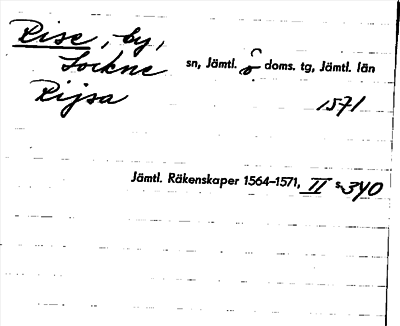 Rise, by,
Lockne sn, Jämtl. ö doms. tg, Jämtl. län
Rijsa 1571
Jämtl. Räkenskaper 1564–1571, II s. 340